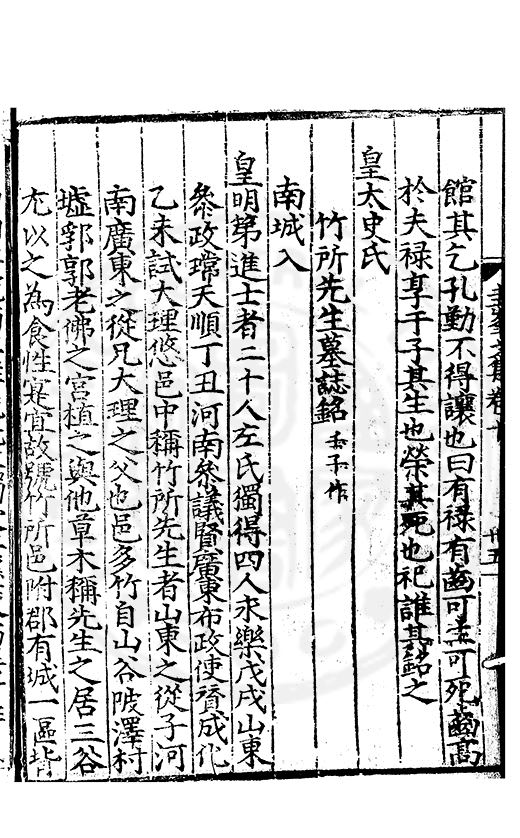 館其乞孔勤不得讓也曰有祿有齒可盂可死齒高
於夫祿享于子其生也榮其死也祀誰其銘之
皇太史氏
竹所先生墓誌銘 壬子作
南城入
皇明第進士者二十人左氏獨得四人永樂戊戌山東
叅政璫天順丁丑河南叅議賢廣東布政使賛成化
乙未試大理悠邑中稱竹所先生者山東之從子河
南廣東之從凡大理之父也邑多竹自山谷陂澤村
墟郛郭老佛之宮植之與他草木稱先生之居三谷
尤以之為食性寔宜故號竹所邑附郡有城一區皆